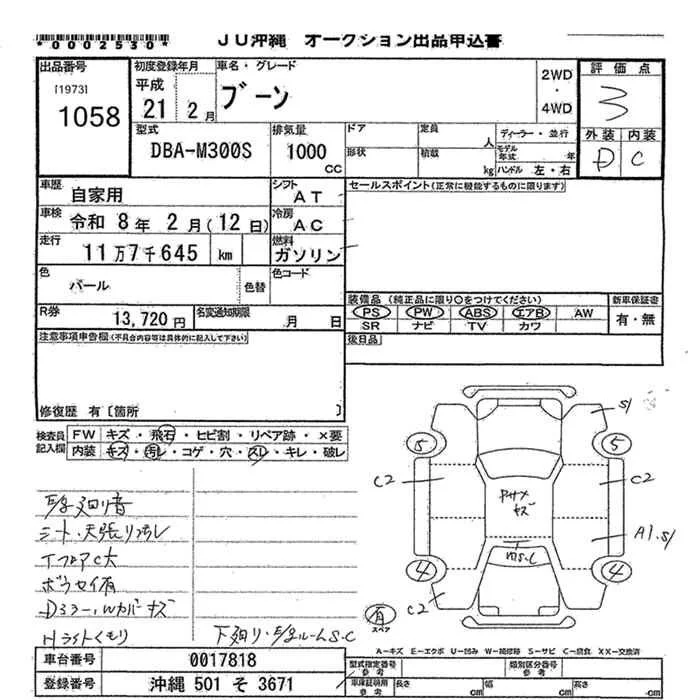 *0002530* JU沖縄 オークション出品申込書
出品番号 初度登録年月 車名・グレード 2WD・4WD 評価点
[1973] 1058 平成 21 2月 ブーン 3
型式 排気量 ドア 定員 人 ディーラー・並行 外装 内装
DBA-M300S 1000 CC 形状 積載 kg モデル年式 年 ハンドル 左・右 D C
車歴 自家用 シフト AT セールスポイント(正常に機能するものに限ります)
車検 令和 8年 2月(12日) 冷房 AC
走行 11万7千645 km 燃料 ガソリン
色 パール 色替 色コード
装備品 (純正品に限り○をつけてください) 新車保証書
R券 13,720円 名変通知期限 月 日 PS PW ABS エアB AW 有・無
SR ナビ TV カワ
注意事項申告欄(不具合内容等は具体的に記入して下さい) 後日品
修復歴 有〔箇所 〕
検査員記入欄 FW キズ・飛石・ヒビ割・リペア跡・×要
内装 キズ・汚レ・コゲ・穴・スレ・キレ・破レ
S1
5 5
C2 C2
キズ
A1.S1
4 4
C2
シート・天張リ汚レ
TフロアC大
ボウセイ有
Dミラー・Wカバーキズ
Hライトくもり
有 スペア
A−キズ E−エクボ U−凹み W−補修跡 S−サビ C−腐食 XX−交換済
車台番号 0017818 型式指定番号 参考 類別区分番号 参考
登録番号 沖縄 501 そ 3671 車庫証明用 参考 長さ cm 幅 cm 高さ cm